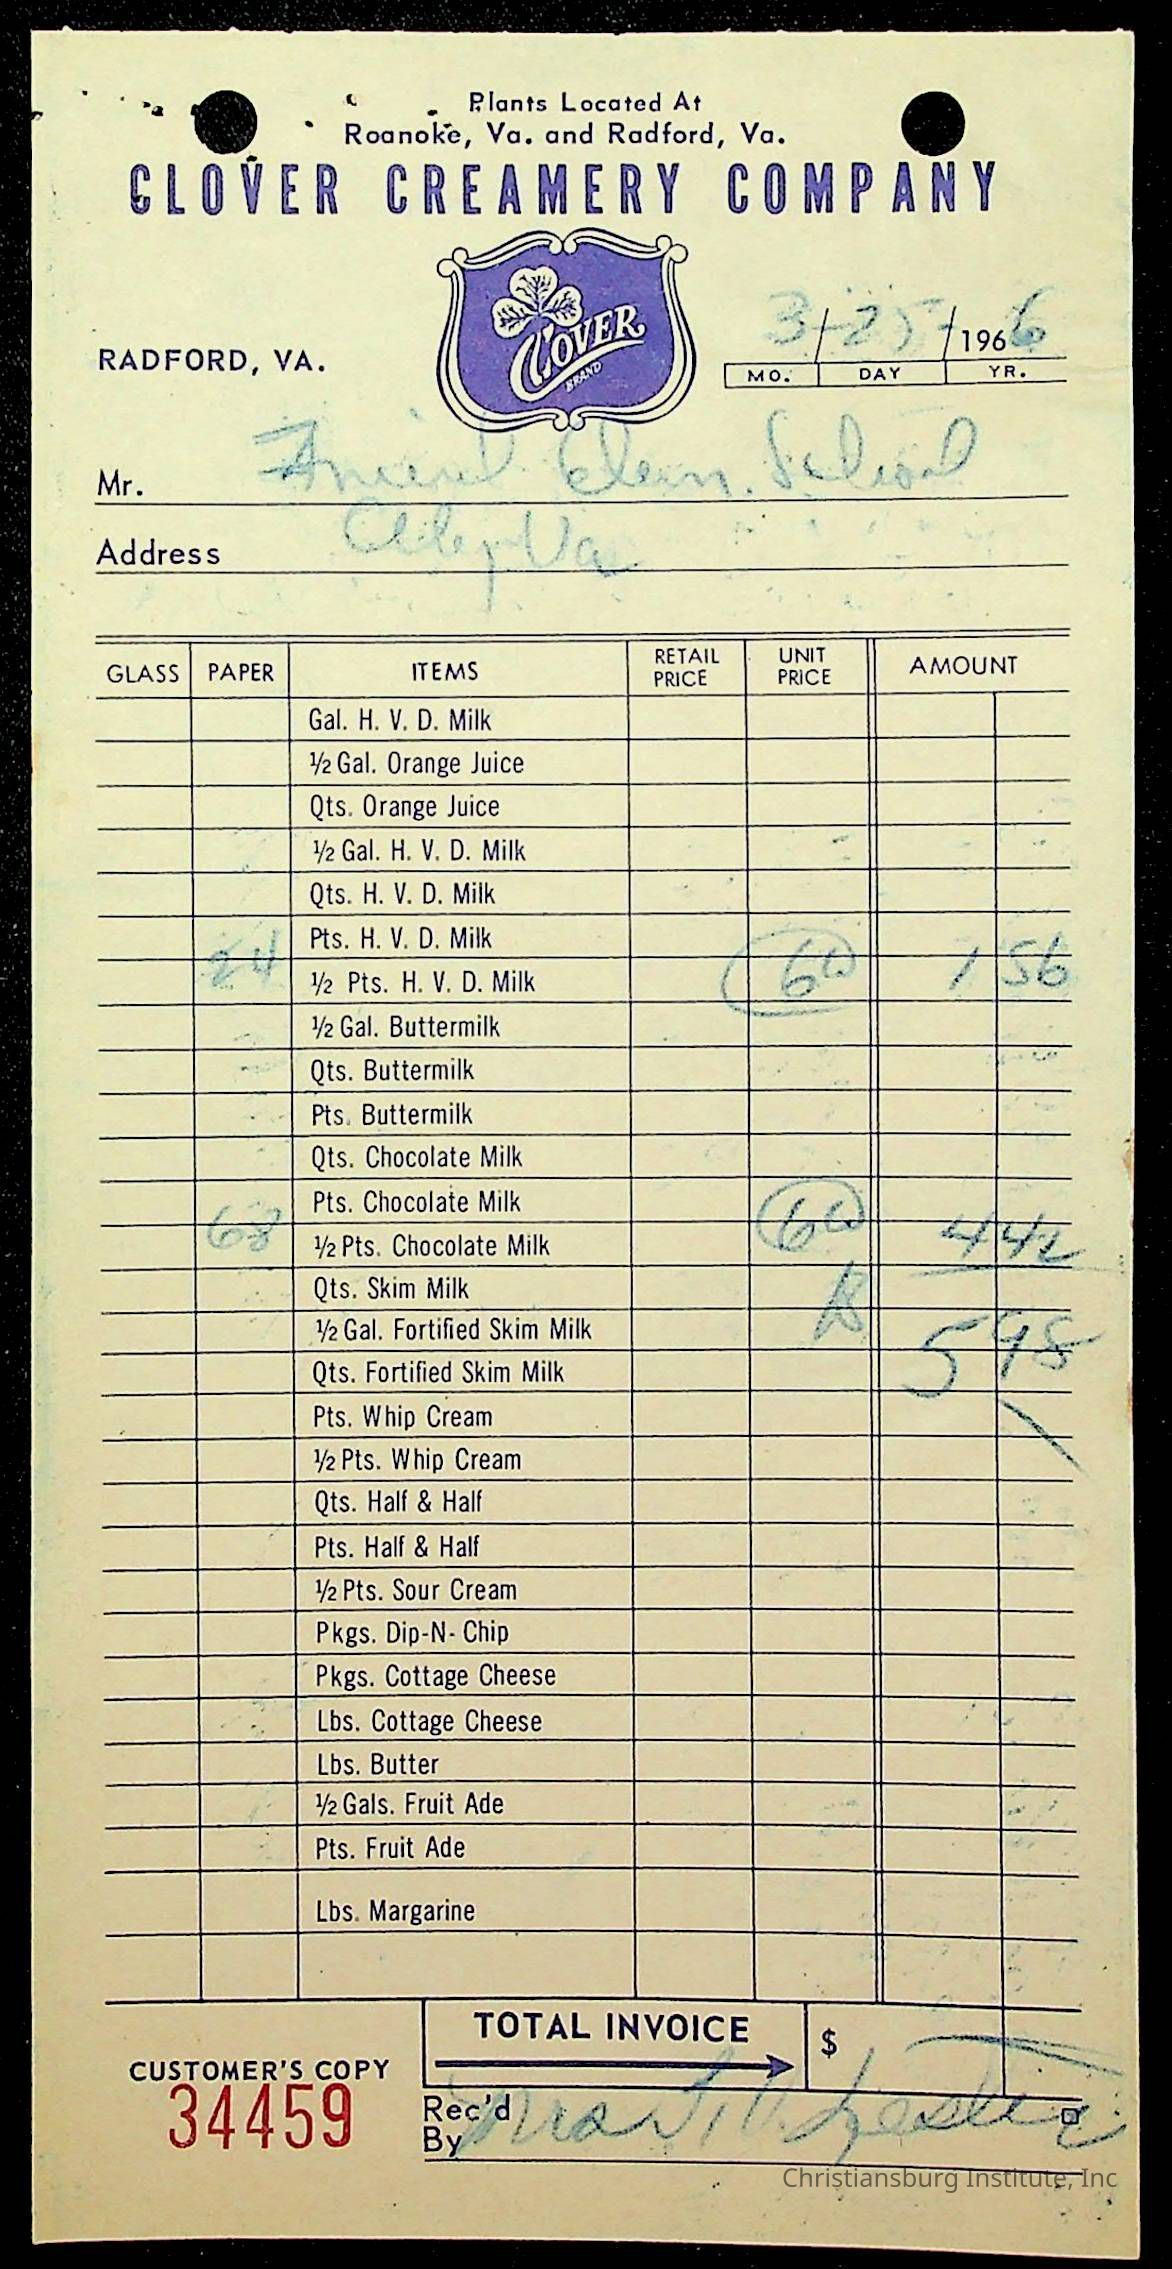 Plants Located At
Roanoke, Va. and Radford, Va.
CLOVER CREAMERY COMPANY
CLOVER
BRAND
RADFORD, VA.
3-25-1966
MO. DAY YR.
Mr. Friend Elem. School
Address Va
GLASS PAPER ITEMS RETAIL PRICE UNIT PRICE AMOUNT
Gal. H. V. D. Milk
½ Gal. Orange Juice
Qts. Orange Juice
½ Gal. H. V. D. Milk
Qts. H. V. D. Milk
Pts. H. V. D. Milk
24 ½ Pts. H. V. D. Milk 1 56
½ Gal. Buttermilk
Qts. Buttermilk
Pts. Buttermilk
Qts. Chocolate Milk
Pts. Chocolate Milk
68 ½ Pts. Chocolate Milk 4 42
Qts. Skim Milk
½ Gal. Fortified Skim Milk 5 98
Qts. Fortified Skim Milk
Pts. Whip Cream
½ Pts. Whip Cream
Qts. Half & Half
Pts. Half & Half
½ Pts. Sour Cream
Pkgs. Dip-N-Chip
Pkgs. Cottage Cheese
Lbs. Cottage Cheese
Lbs. Butter
½ Gals. Fruit Ade
Pts. Fruit Ade
Lbs. Margarine
TOTAL INVOICE $
CUSTOMER'S COPY
34459
Rec'd By Mrs
Christiansburg Institute, Inc